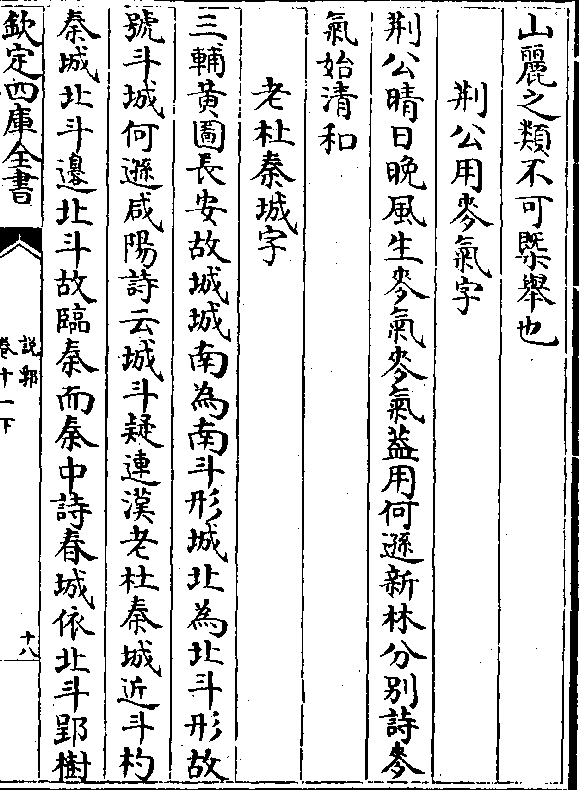 山麗之類不可槩舉也
荆公用麥氣字
荆公晴日晚風生麥氣麥氣葢用何遜新林分别詩麥
氣始清和
老杜秦城字
三輔黄圖長安故城城南為南斗形城北為北斗形故
號斗城何遜咸陽詩云城斗疑連漢老杜秦城近斗杓
秦城北斗邉北斗故臨秦而秦中詩春城依北斗郢樹
欽定四庫全書
說郛
卷十一下
十八